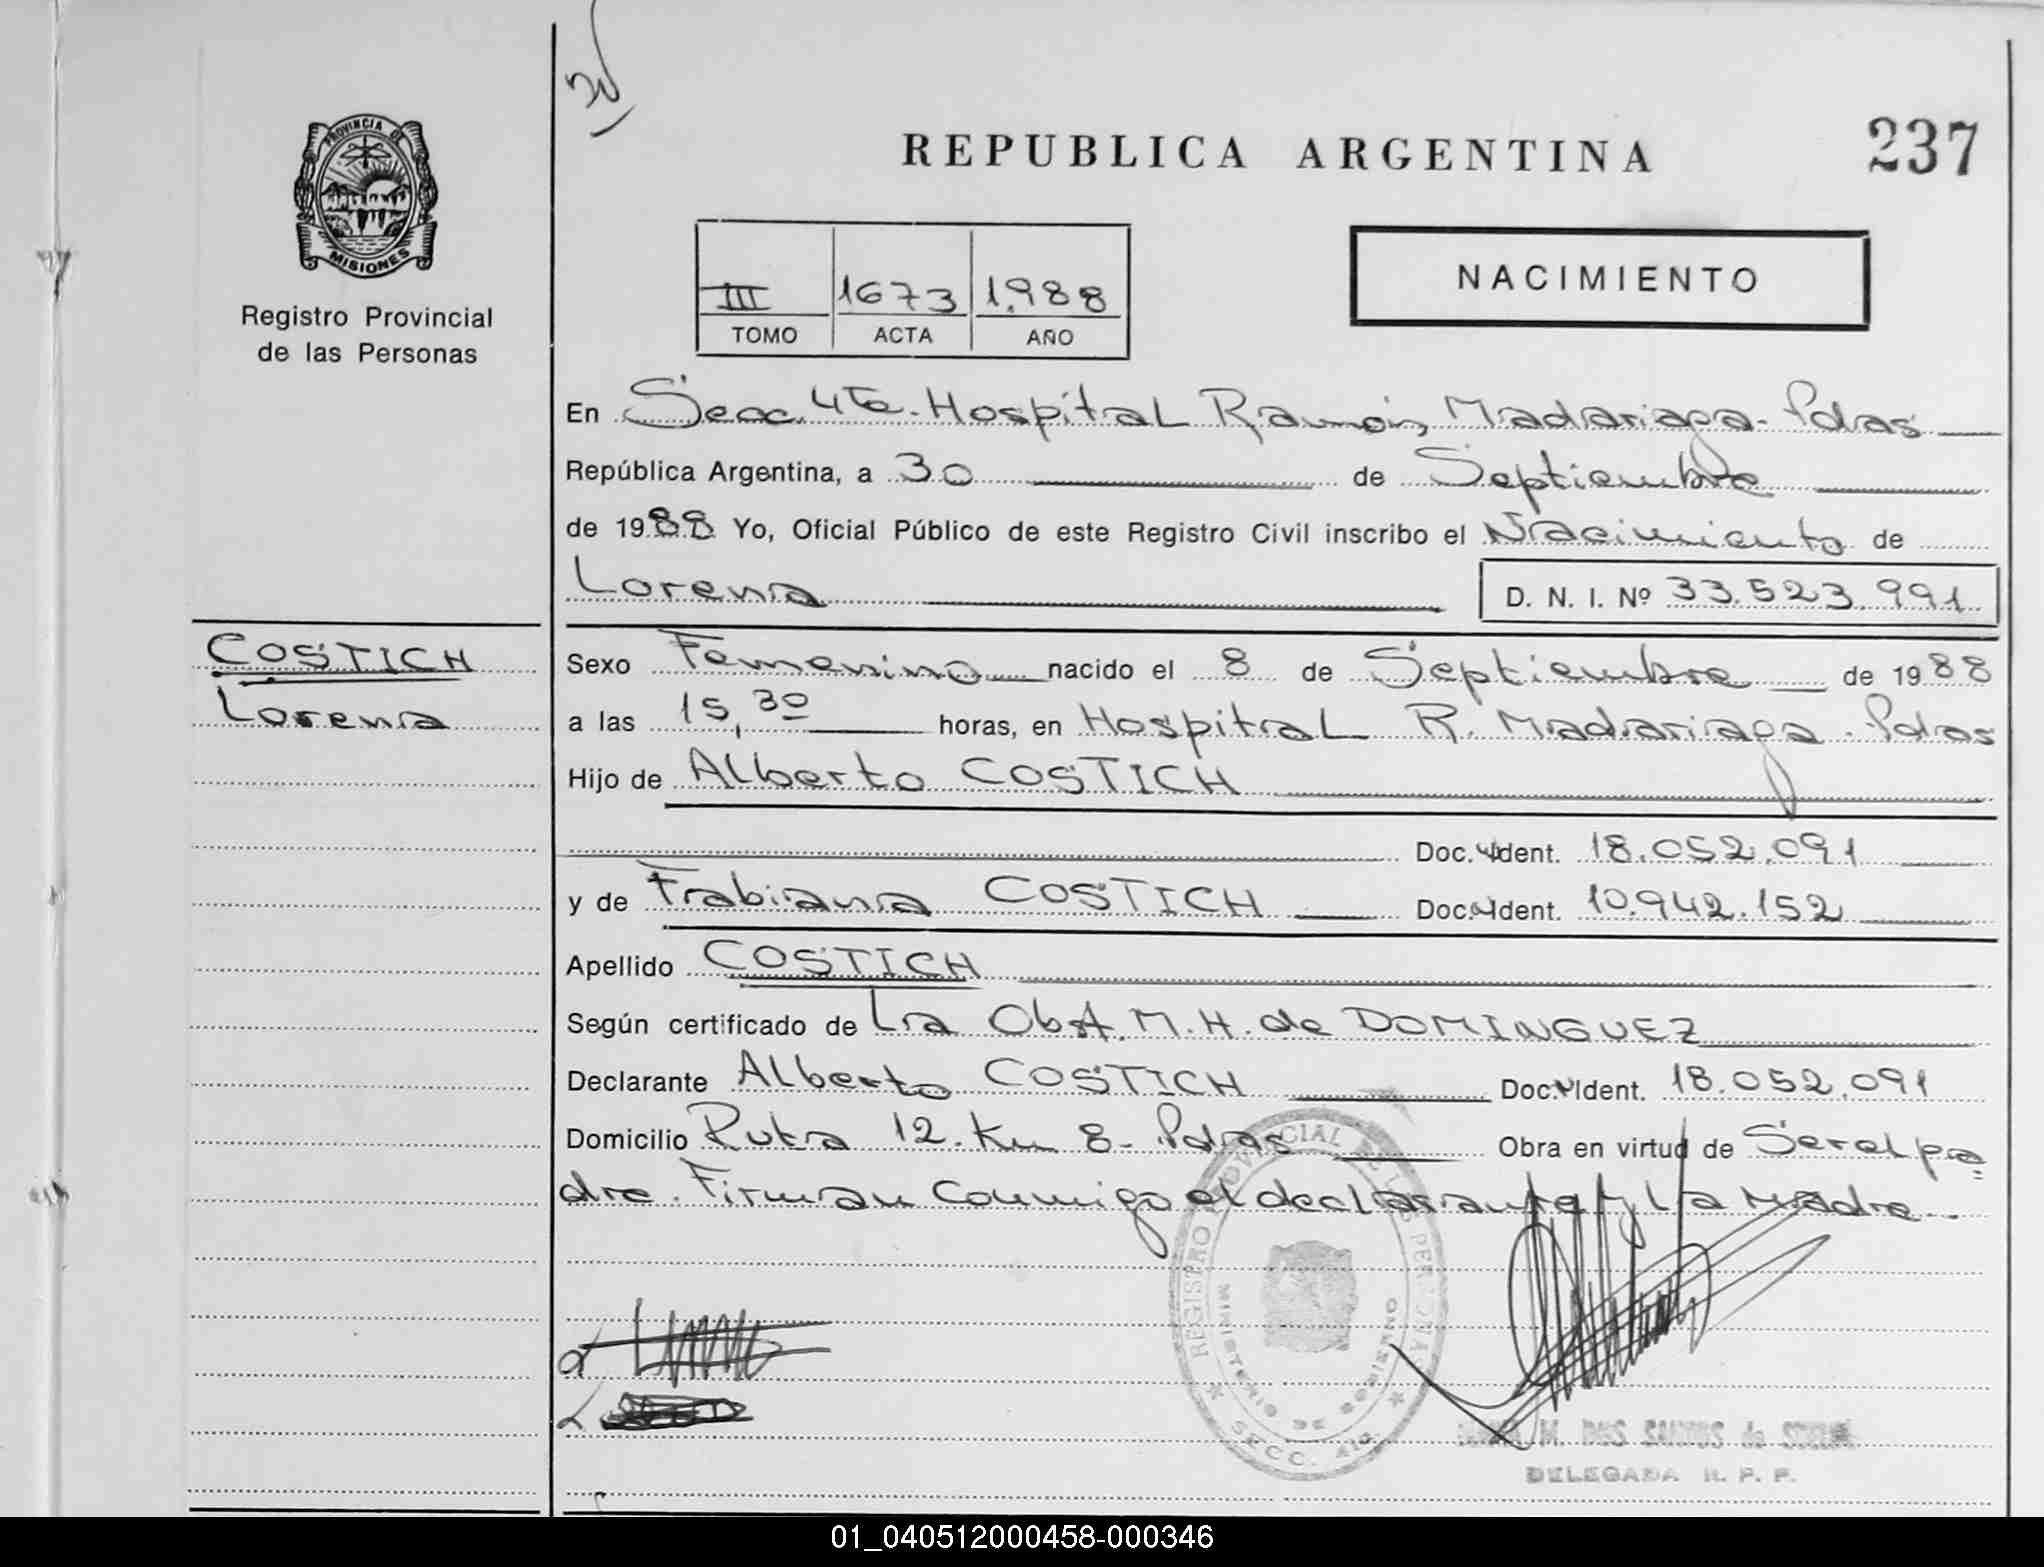 REPUBLICA ARGENTINA
237
PROVINCIA DE
MISIONES
Registro Provincial
de las Personas
III 1673 1.988
TOMO ACTA AÑO
NACIMIENTO
En Secc. 4ta. Hospital Ramón Madariaga - Pdas
República Argentina, a 30 de Septiembre
de 1988 Yo, Oficial Público de este Registro Civil inscribo el Nacimiento de
Lorena D. N. I. Nº 33.523.991
COSTICH
Lorena
Sexo Femenino nacido el 8 de Septiembre de 1988
a las 15,30 horas, en Hospital R. Madariaga - Pdas
Hijo de Alberto COSTICH
Doc. Ident. 18.052.091
y de Fabiana COSTICH Doc. Ident. 10.942.152
Apellido COSTICH
Según certificado de La Obst. M. H. de DOMINGUEZ
Declarante Alberto COSTICH Doc. Ident. 18.052.091
Domicilio Ruta 12 - Km 8 - Pdas Obra en virtud de Ser el pa
dre. Firman conmigo el declarante y la Madre
REGISTRO PROVINCIAL DE LAS PERSONAS
MINISTERIO DE GOBIERNO
SECC. 4ta
M. DOS SANTOS de
DELEGADA R. P. P.
01_040512000458-000346